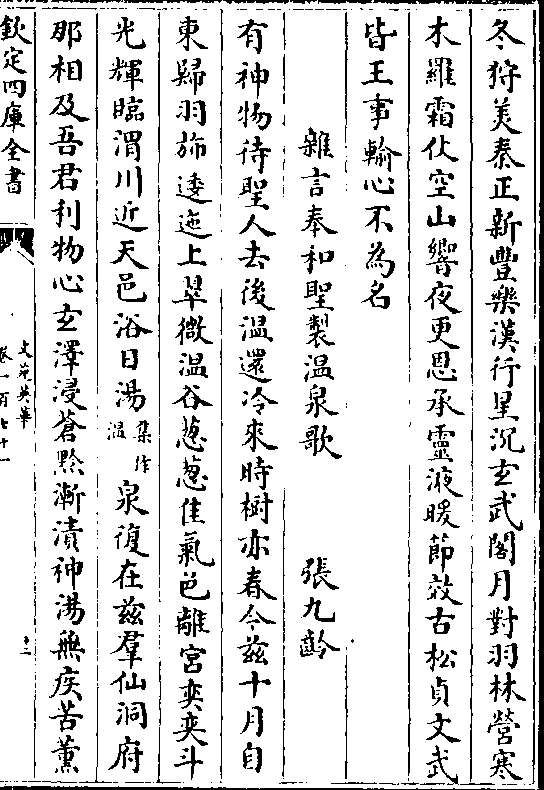 冬狩美秦正新豐樂漢行星沉玄武閣月對羽林營寒
木羅霜仗空山響夜更恩承靈液暖節效古松貞文武
皆王事輸心不為名
雜言奉和聖製温泉歌 張九齡
有神物待聖人去後温還冷來時樹亦春今兹十月自
東歸羽斾逶迤上翠微温谷葱葱佳氣色離宮奕奕斗
光輝臨渭川近天邑浴日湯集作温泉復在兹羣仙洞府
那相及吾君利物心玄澤浸蒼黔漸漬神湯無疾苦薰
欽定四庫全書
文苑英華
卷一百七十一
十二